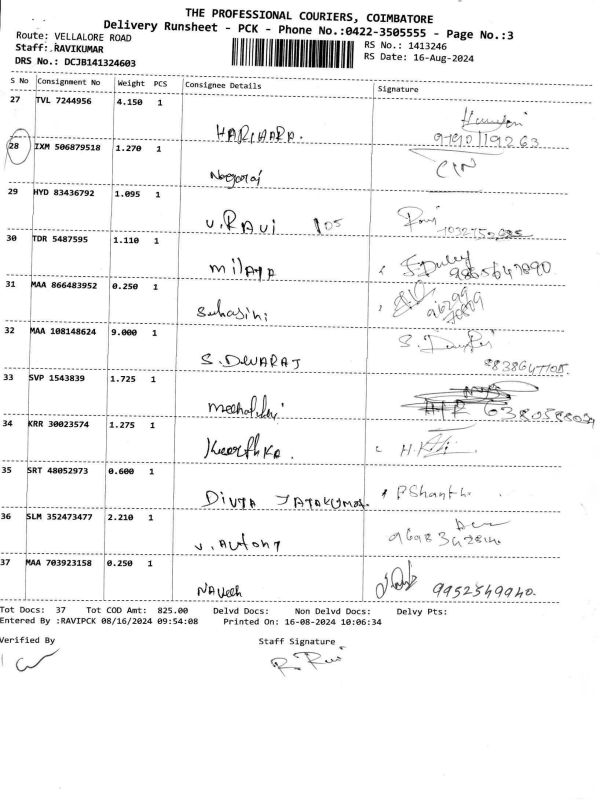 THE PROFESSIONAL COURIERS, COIMBATORE
Delivery Runsheet - PCK - Phone No.:0422-3505555 - Page No.:3
Route: VELLALORE ROAD
RS No.: 1413246
Staff: RAVIKUMAR
RS Date: 16-Aug-2024
DRS No.: DCJB141324603
S No Consignment No Weight PCS Consignee Details Signature
27 TVL 7244956 4.150 1
HARIHARA.
28 IXM 506879518 1.270 1
Nagaraj
29 HYD 83436792 1.095 1
V. Ravi 105
30 TDR 5487595 1.110 1
Milaya
31 MAA 866483952 0.250 1
Suhasini
32 MAA 108148624 9.000 1
S. DEVARAJ
33 SVP 1543839 1.725 1
34 KRR 30023574 1.275 1
Keerthika.
35 SRT 48052973 0.600 1
DIVYA JAYAKUMAR. P Shanthi
36 SLM 352473477 2.210 1
V. Antony
37 MAA 703923158 0.250 1
Naveen 9952549940.
Tot Docs: 37 Tot COD Amt: 825.00 Delvd Docs: Non Delvd Docs: Delvy Pts:
Entered By :RAVIPCK 08/16/2024 09:54:08 Printed On: 16-08-2024 10:06:34
Verified By Staff Signature